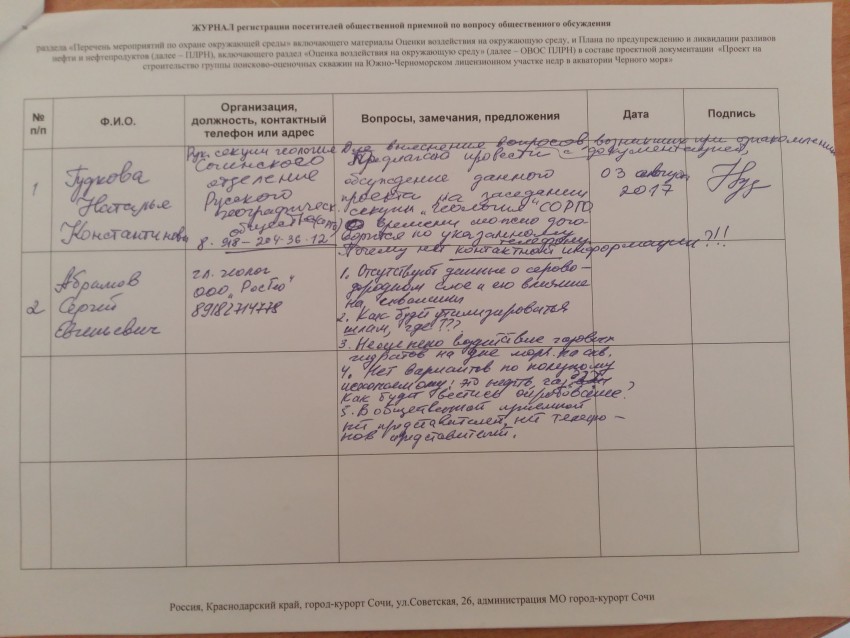 ЖУРНАЛ регистрации посетителей общественной приемной по вопросу общественного обсуждения
раздела «Перечень мероприятий по охране окружающей среды» включающего материалы Оценки воздействия на окружающую среду, и Плана по предупреждению и ликвидации разливов
нефти и нефтепродуктов (далее – ПЛРН), включающего раздел «Оценка воздействия на окружающую среду» (далее – ОВОС ПЛРН) в составе проектной документации «Проект на
строительство группы поисково-оценочных скважин на Южно-Черноморском лицензионном участке недр в акватории Черного моря»
№ п/п
Ф.И.О.
Организация, должность, контактный телефон или адрес
Вопросы, замечания, предложения
Дата
Подпись
1
Гудкова
Наталья
Константиновна
Рук. секции геология
Сочинского
отделение
Русского
географическ.
общества(СОРГО)
8. 918-204-36-12
Для выяснения вопросов возникших при ознакомлении
с документацией,
Предлагаю провести
обсуждение данного
проекта на заседании
секции "Геология" СОРГО
О времени можно дого
вориться по указанному
телефону
Почему нет контактной информации?!!
03 августа
2017
2
Абрамов
Сергей
Евгеньевич
гл. геолог
ООО "РосГео"
89182714778
1. Отсутствуют данные о серово-
дородном слое и его влияние
на скважины
2. Как будет утилизироваться
шлам, где???
3. Неоценено воздействие газовых
гидратов на дне моря на скв.
4. Нет вариантов по полезному
ископаемому: это нефть, газ
Как будет вестись опробование?
5. В общественной приемной
нет представителей, нет телефо-
нов представителей.
Россия, Краснодарский край, город-курорт Сочи, ул.Советская, 26, администрация МО город-курорт Сочи